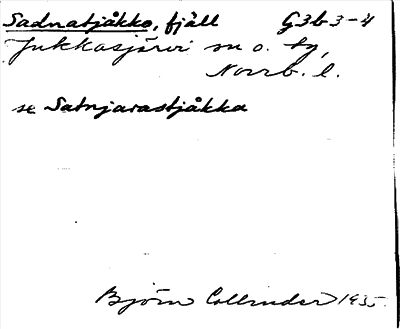 Sadnatjåkko, fjäll G3b3-4
Jukkasjärvi sn o. tg,
Norrb. l.
se Satnjarastjåkka
Björn Collinder 1935.